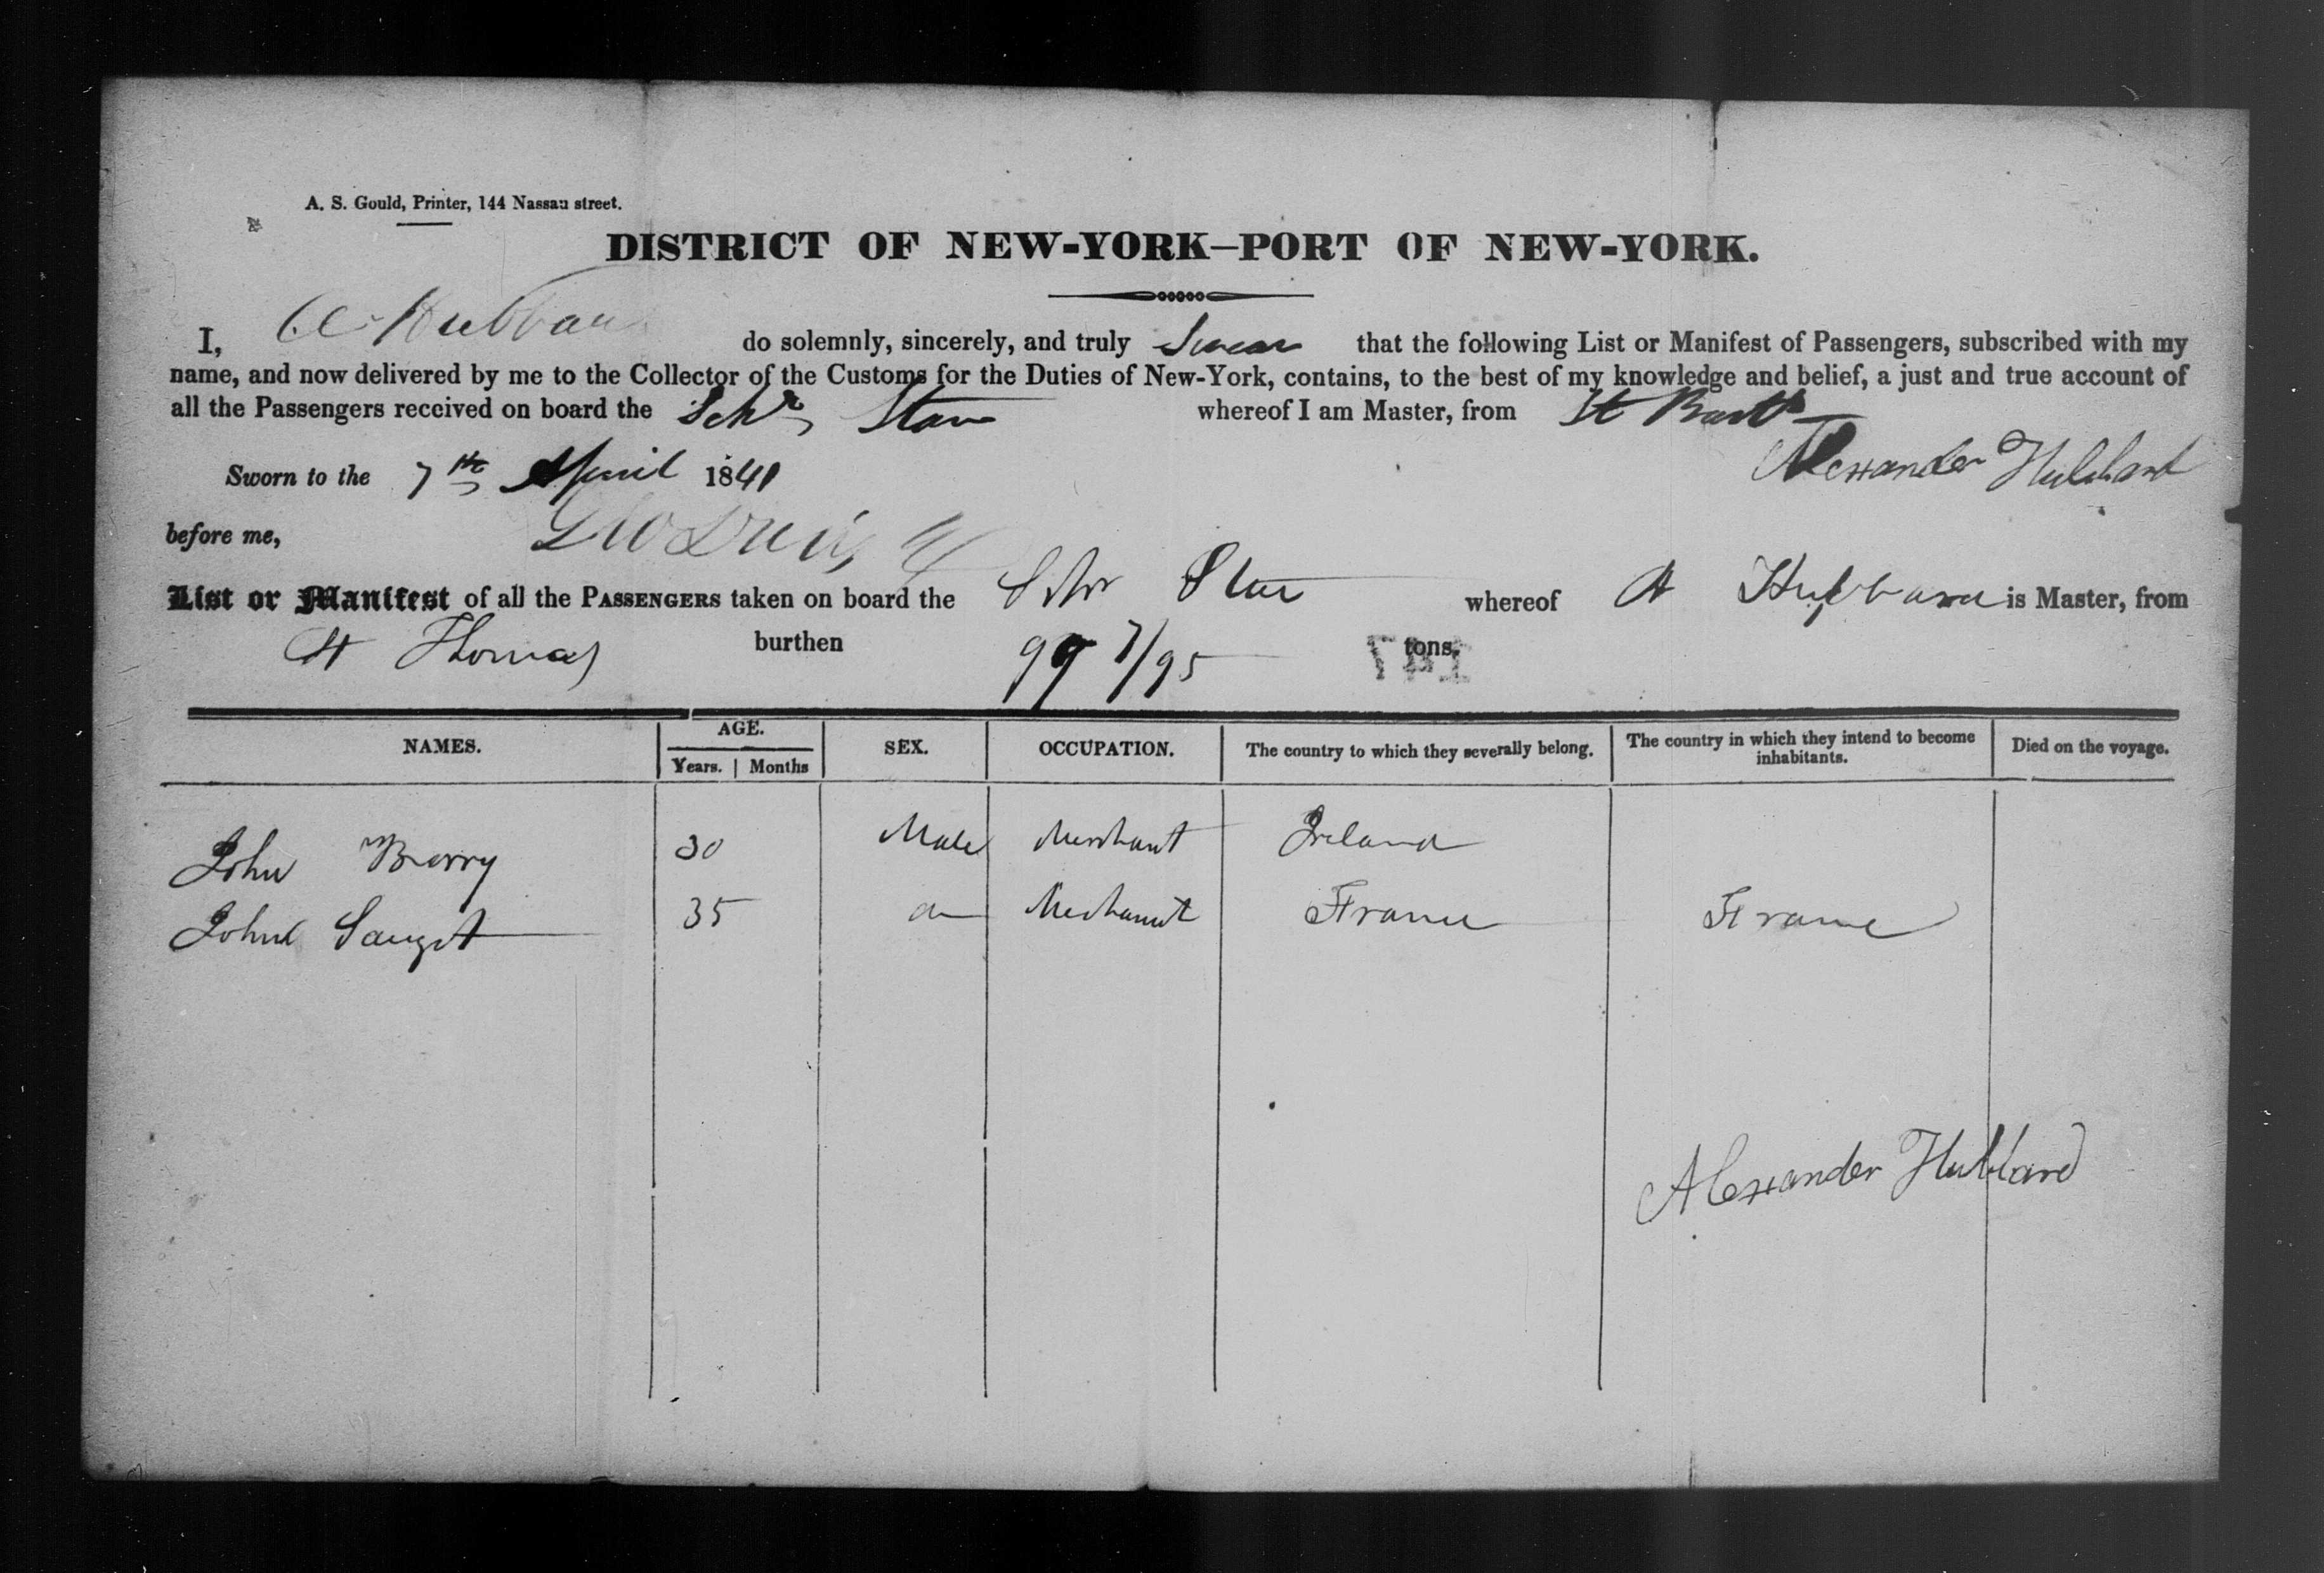 A. S. Gould, Printer, 144 Nassau street.
DISTRICT OF NEW-YORK—PORT OF NEW-YORK.
I, A Hubbard do solemnly, sincerely, and truly Swear that the following List or Manifest of Passengers, subscribed with my
name, and now delivered by me to the Collector of the Customs for the Duties of New-York, contains, to the best of my knowledge and belief, a just and true account of
all the Passengers received on board the Schr Star whereof I am Master, from St Barts
Sworn to the 7th April 1841 Alexander Hubbard
before me,
List or Manifest of all the PASSENGERS taken on board the Schr Star whereof A Hubbard is Master, from
St Thomas burthen 99 7/95 tons.
147
NAMES. AGE. Years. Months SEX. OCCUPATION. The country to which they severally belong. The country in which they intend to become inhabitants. Died on the voyage.
John Berry 30 Male Merchant Ireland
John 35 do Merchant France France
Alexander Hubbard